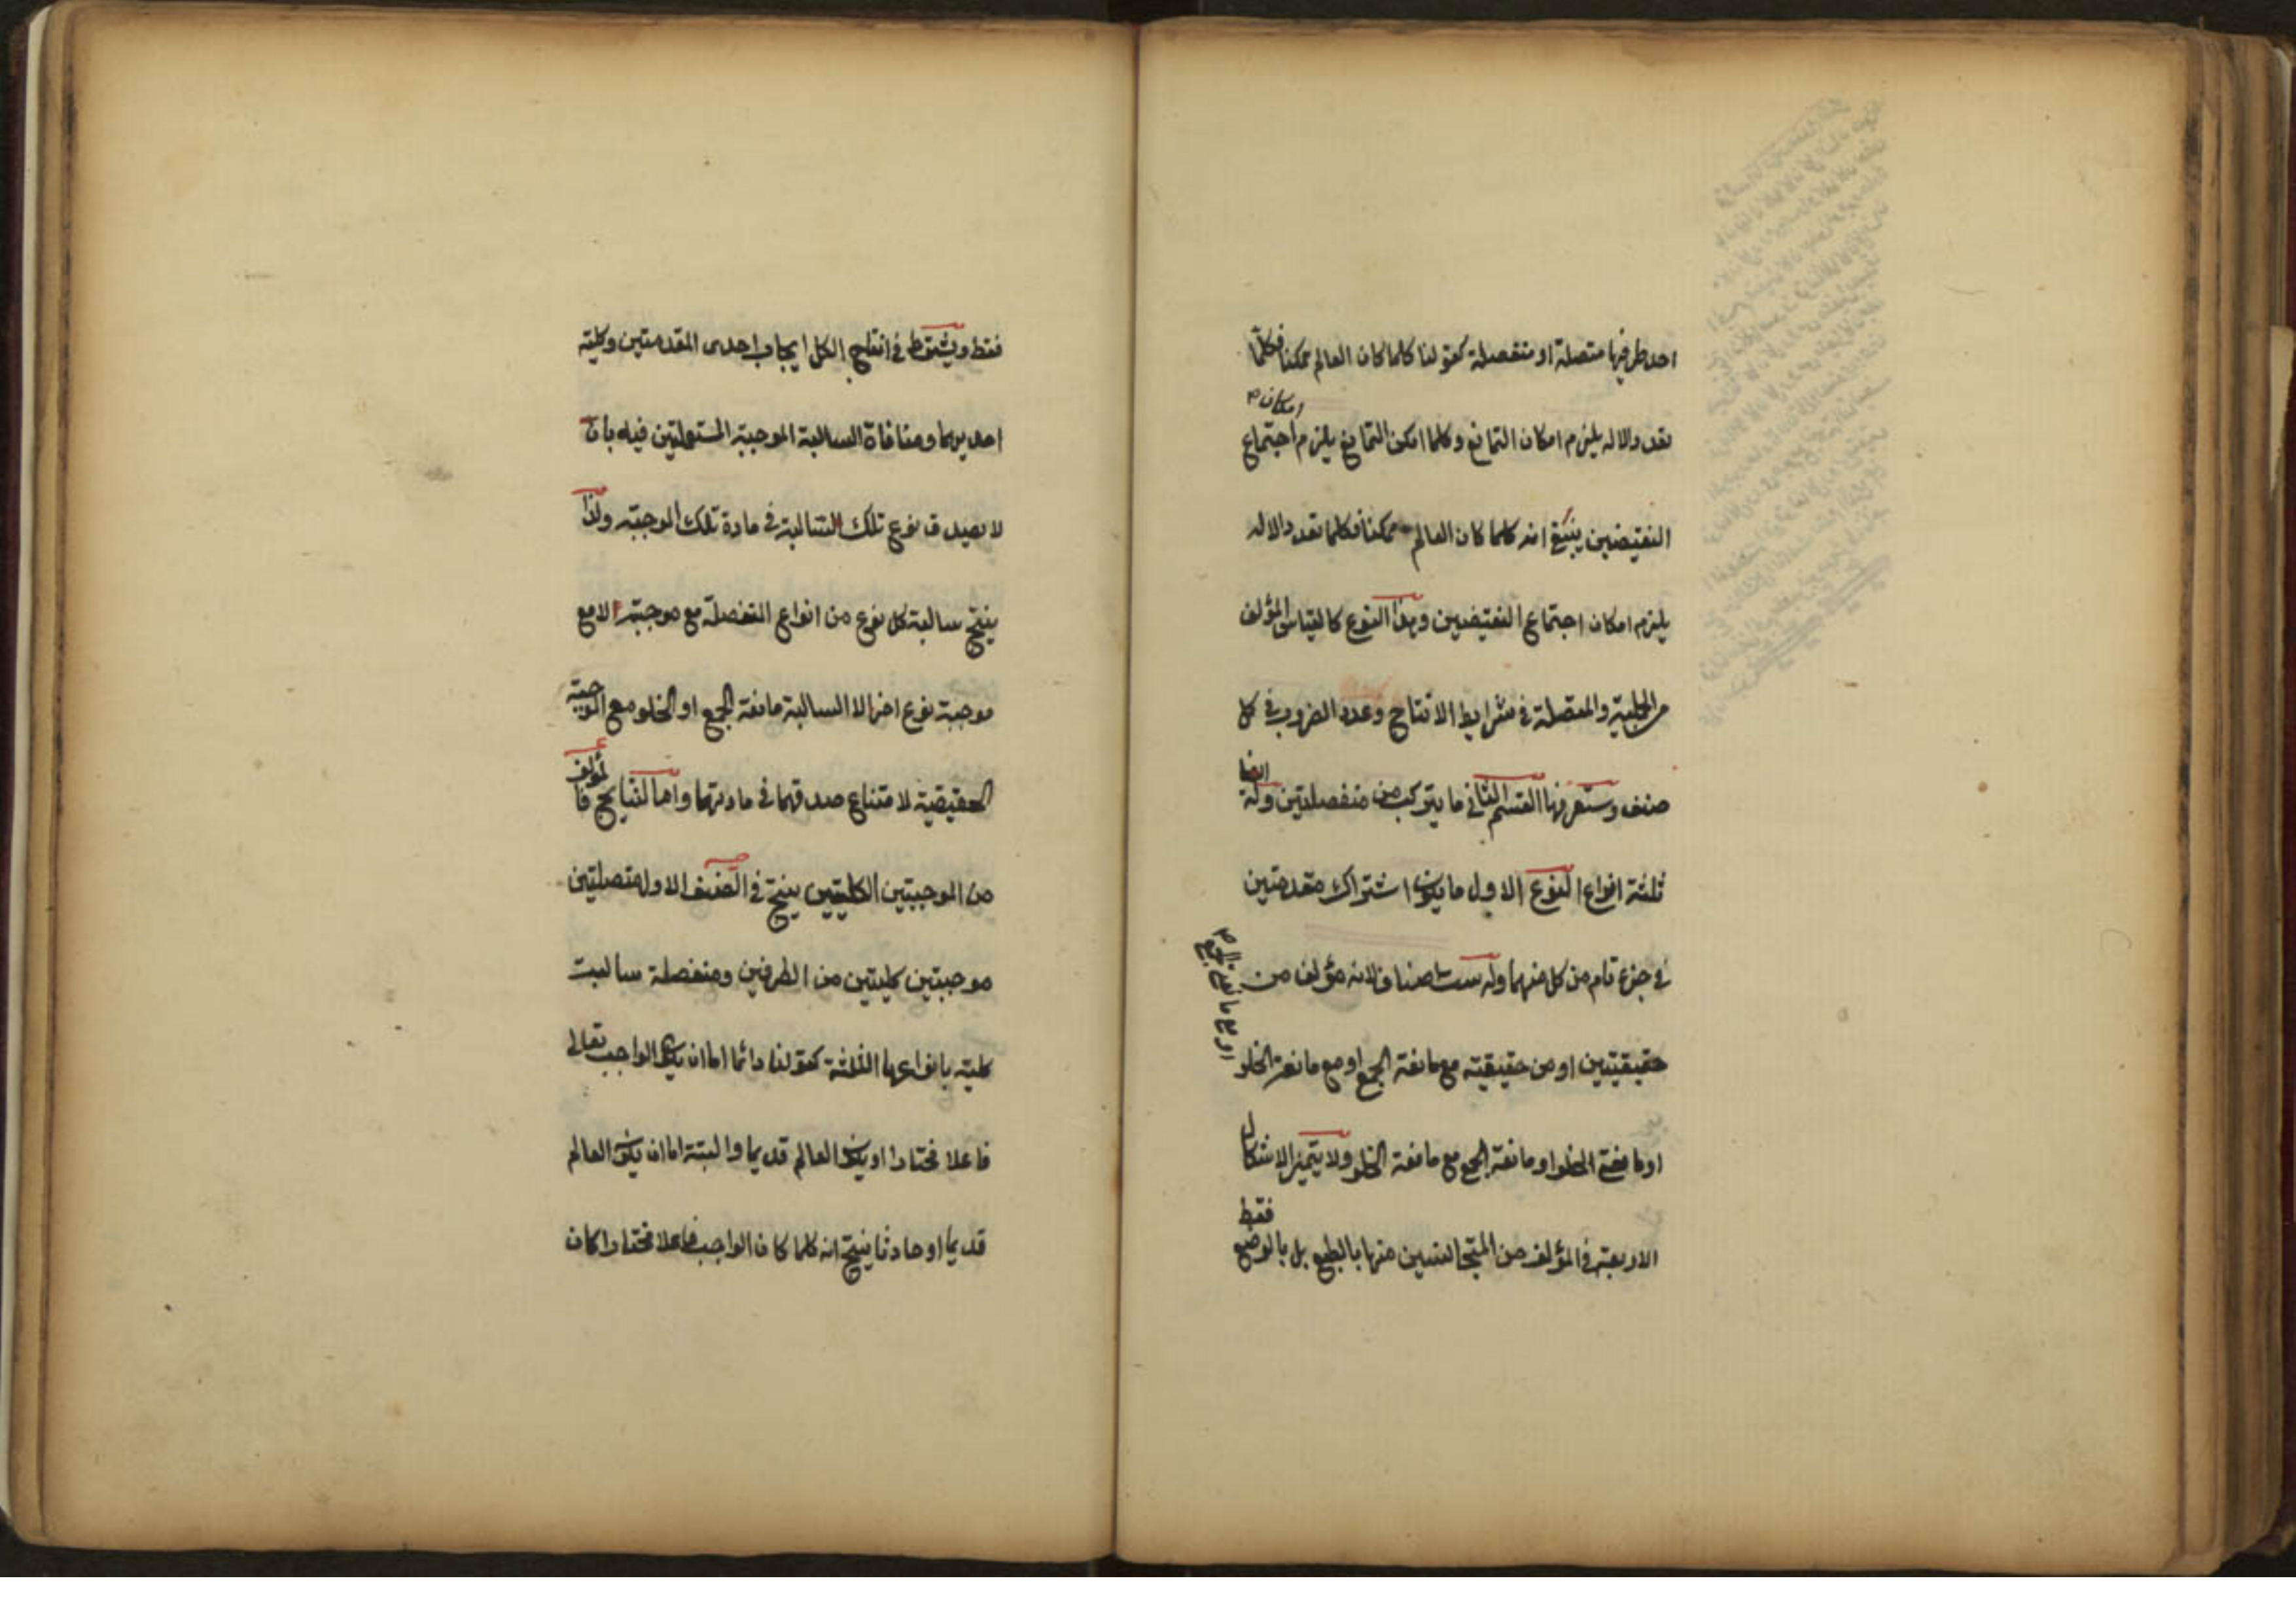 احد طرفيها متصلة او منفصلة كقولنا كلما كان العالم ممكنا فكلما
تعدد الاله يلزم امكان التمانع وكلما امكن التمانع يلزم امكان اجتماع
النقيضين ينتج انه كلما كان العالم ممكنا فكلما تعدد الاله
يلزم امكان اجتماع النقيضين وهذا النوع كالقياس المؤلف
من الحملية والمتصلة في شرايط الانتاج وعدد الضروب في كل
صنف وستعرفها القسم الثاني ما يتركب من منفصلتين وله ايضا
ثلثة انواع النوع الاول ما يكون اشتراك مقدمتين
في جزء تام من كل منهما وله ستة اصناف لانه مؤلف من
حقيقيتين او من حقيقية مع مانعة الجمع او مع مانعة الخلو او من مانعتي الجمع
او مانعتي الخلو او مانعة الجمع مع مانعة الخلو ولا يتميز الاشكال
الاربعة في المؤلف من المتجانسين منها بالطبع بل بالوضع فقط
فقط ويشترط في انتاج الكل ايجاب احدى المقدمتين وكلية
احديهما ومنافاة السالبة الموجبة المستعملتين فيه بان
لا يصدق نوع تلك السالبة في مادة تلك الموجبة ولذا
ينتج سالبة كل نوع من انواع المنفصلة مع موجبته لا مع
موجبة نوع اخر الا السالبة مانعة الجمع او الخلو مع الموجبة
الحقيقية لامتناع صدقهما في مادتهما واما النتايج فالمؤلف
من الموجبتين الكليتين ينتج في الصنف الاول متصلتين
موجبتين كليتين من الطرفين ومنفصلة سالبة
كلية بانواعها الثلثة كقولنا دائما اما ان يكون الواجب تعالى
فاعلا مختارا او يكون العالم قديما والبتة اما ان يكون العالم
قديما او حادثا ينتج انه كلما كان الواجب فاعلا مختارا كان